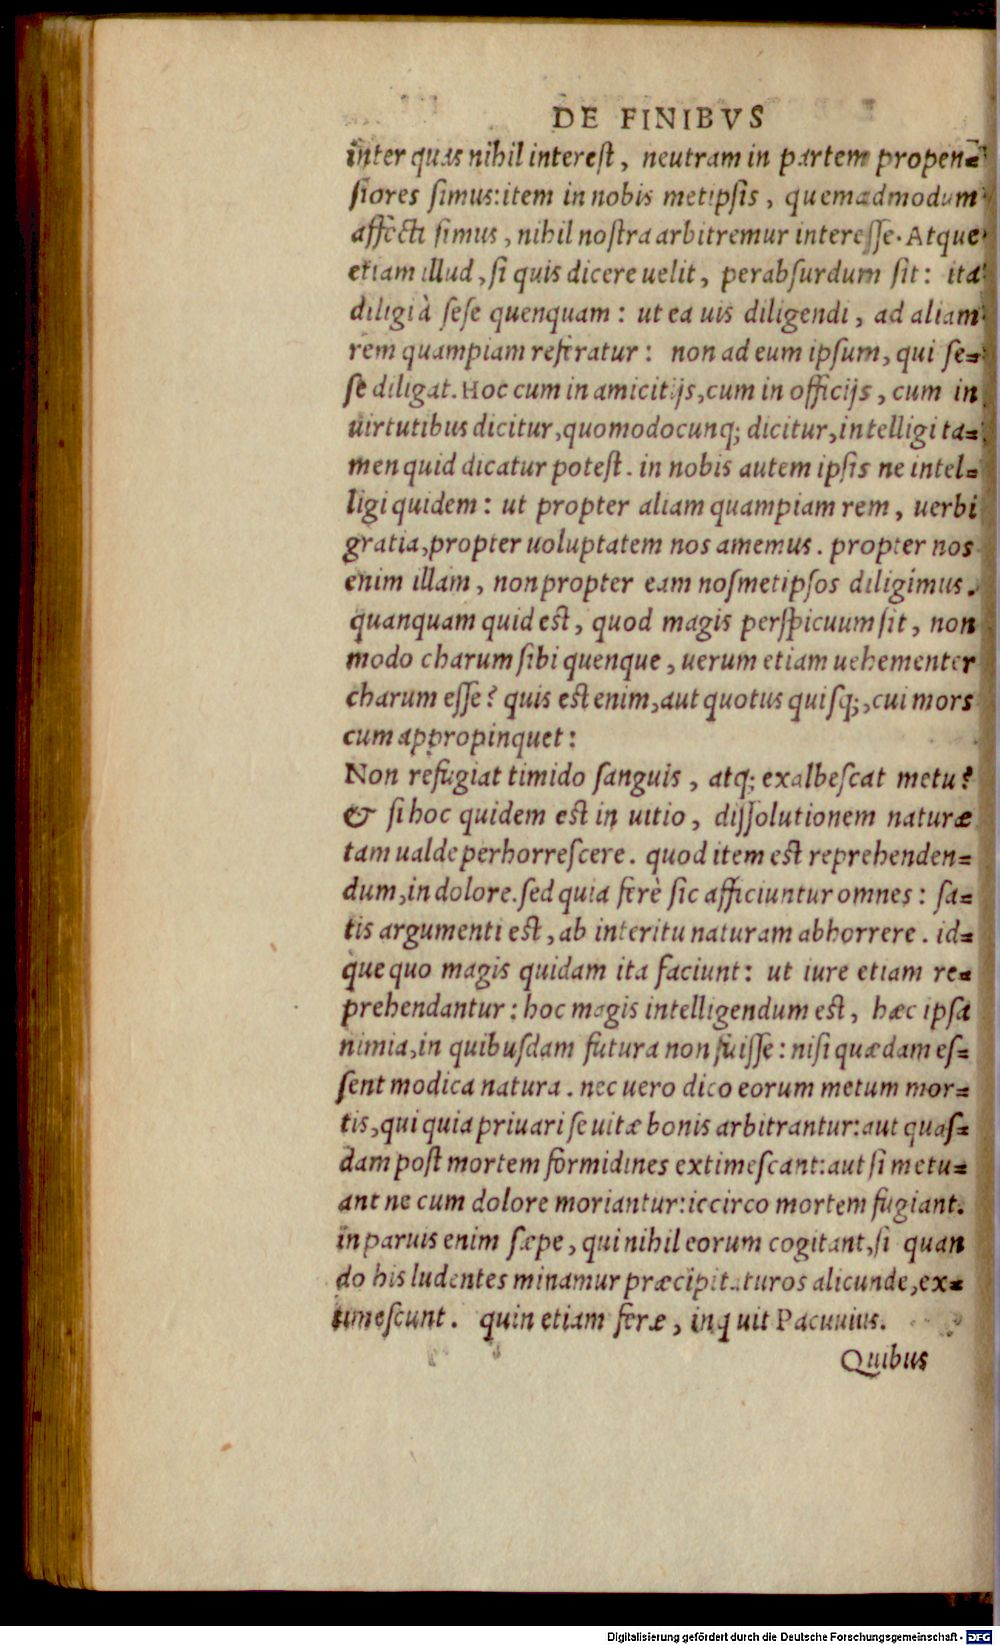 DE FINIBVS
inter quas nihil interest, neutram in partem propen=
siores simus: item in nobis metipsis, quemadmodum
affecti simus, nihil nostra arbitremur interesse. Atque
etiam illud, si quis dicere uelit, perabsurdum sit: ita
diligi à sese quenquam: ut ea uis diligendi, ad aliam
rem quampiam referatur: non ad eum ipsum, qui se=
se diligat. Hoc cum in amicitijs, cum in officijs, cum in
uirtutibus dicitur, quomodocunq; dicitur, intelligi ta=
men quid dicatur potest. in nobis autem ipsis ne intel=
ligi quidem: ut propter aliam quampiam rem, uerbi
gratia, propter uoluptatem nos amemus. propter nos
enim illam, non propter eam nosmetipsos diligimus.
quanquam quid est, quod magis perspicuum sit, non
modo charum sibi quenque, uerum etiam uehementer
charum esse? quis est enim, aut quotus quisq;, cui mors
cum appropinquet:
Non refugiat timido sanguis, atq; exalbescat metu?
& si hoc quidem est in uitio, dissolutionem naturæ
tam ualde perhorrescere. quod item est reprehenden=
dum, in dolore. sed quia ferè sic afficiuntur omnes: sa=
tis argumenti est, ab interitu naturam abhorrere. id=
que quo magis quidam ita faciunt: ut iure etiam re=
prehendantur: hoc magis intelligendum est, hæc ipsa
nimia, in quibusdam futura non fuisse: nisi quædam es=
sent modica natura. nec uero dico eorum metum mor=
tis, qui quia priuari se uitæ bonis arbitrantur: aut quas=
dam post mortem formidines extimescant: aut si metu=
ant ne cum dolore moriantur: iccirco mortem fugiant.
in paruis enim sæpe, qui nihil eorum cogitant, si quan
do his ludentes minamur præcipitaturos alicunde, ex=
timescunt. quin etiam feræ, inquit Pacuuius.
Quibus
Digitalisierung gefördert durch die Deutsche Forschungsgemeinschaft - DFG